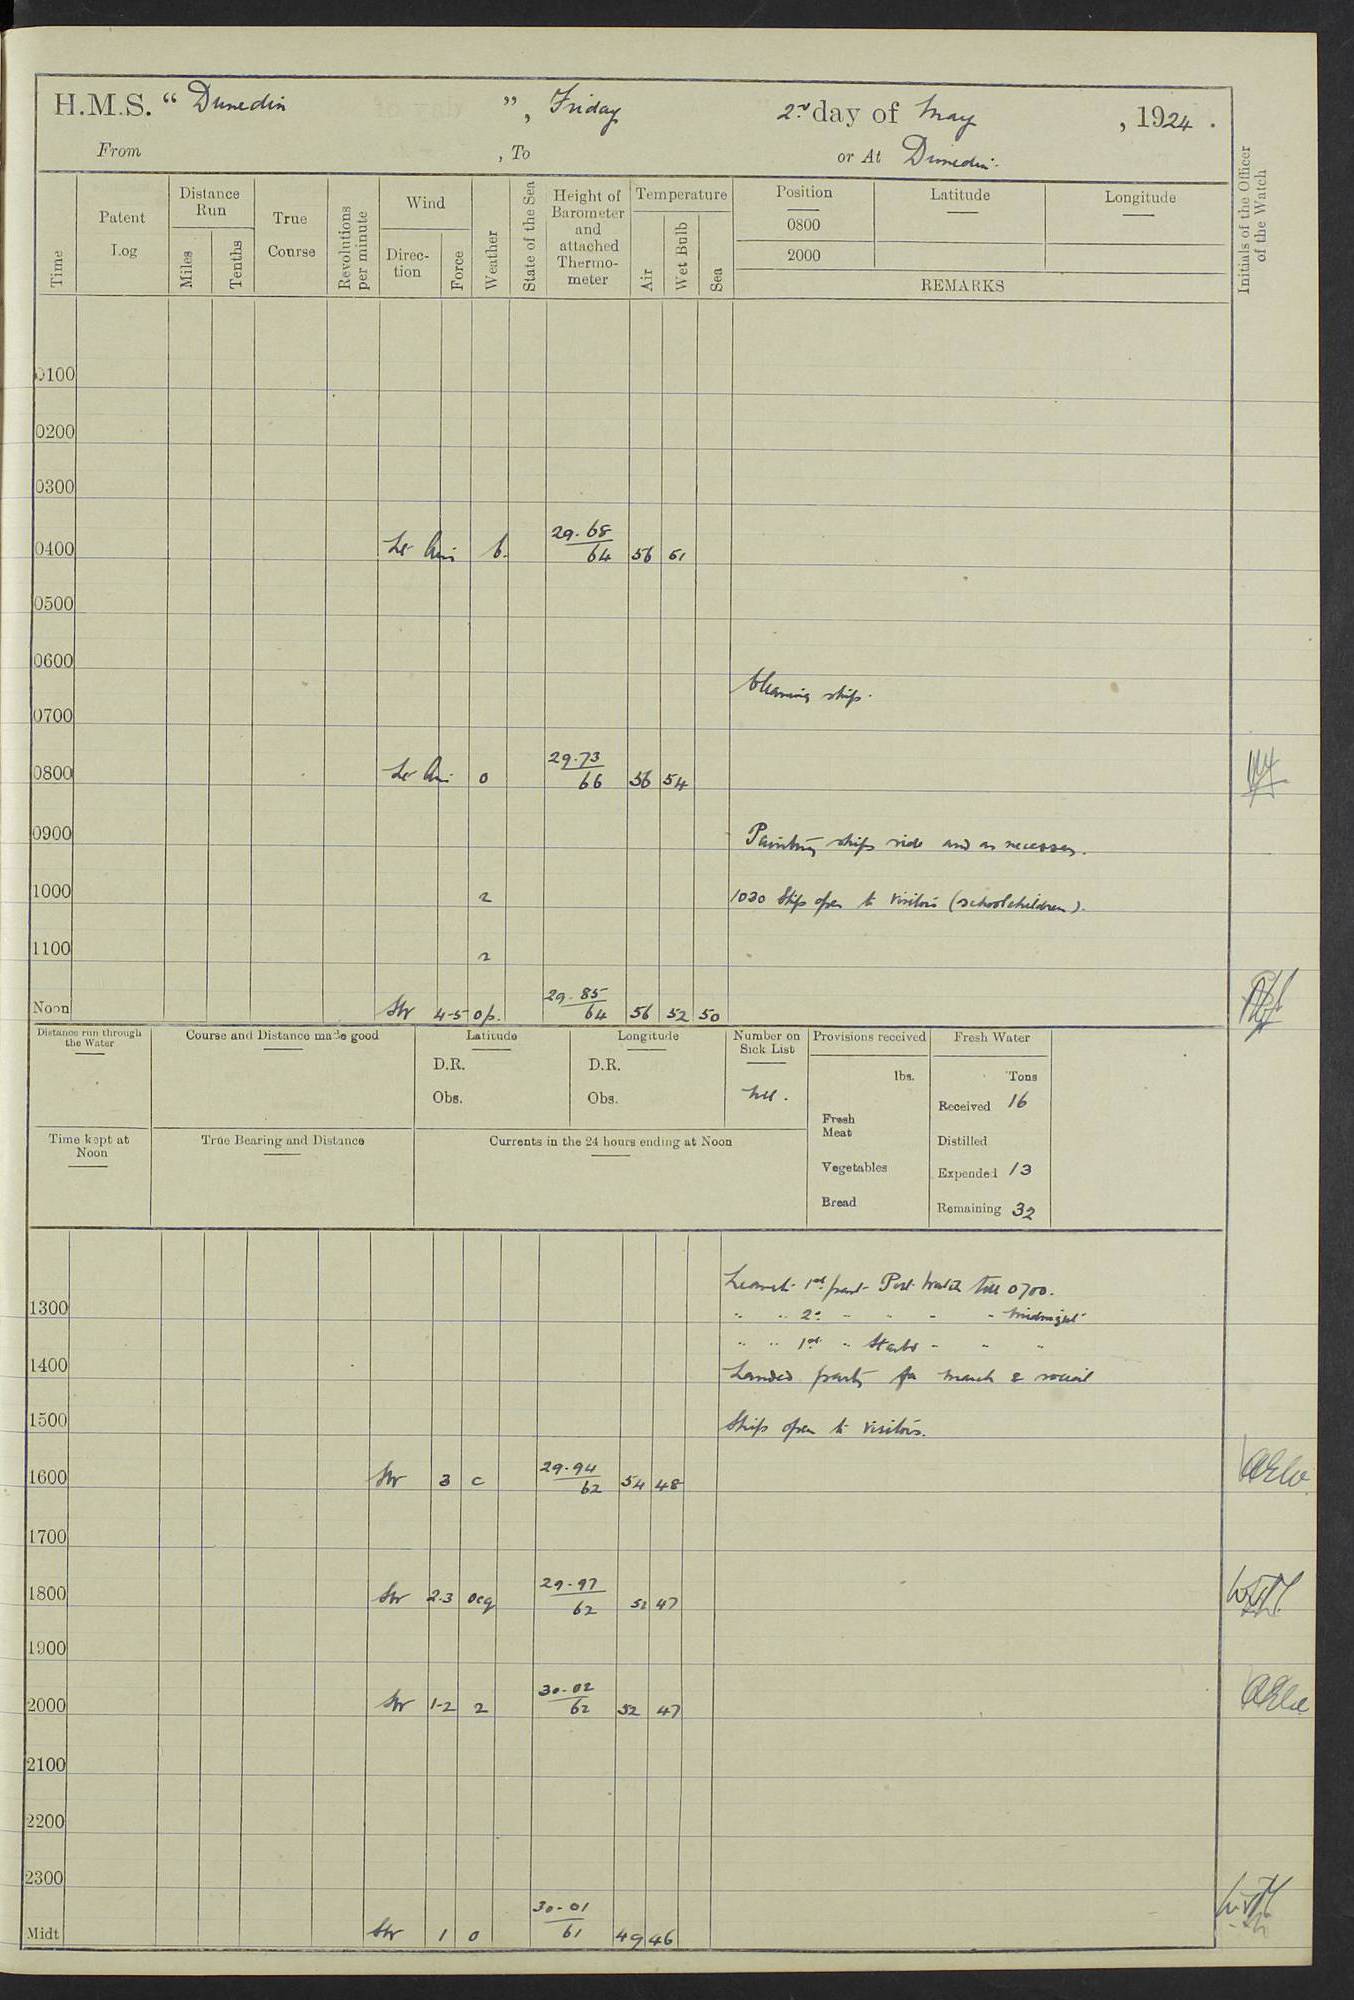 H.M.S. “ Dunedin ”, Friday 2nd day of May , 1924 .
From , To or At Dunedin.
Time
Patent Log
Distance Run
Miles
Tenths
True Course
Revolutions per minute
Wind
Direction
Force
Weather
State of the Sea
Height of Barometer and attached Thermometer
Temperature
Air
Wet Bulb
Sea
Position Latitude Longitude
0800
2000
REMARKS
Initials of the Officer of the Watch
0100
0200
0300
0400 b. 29.68 64 56 51
0500
0600
Cleaning ship.
0700
0800 o 29.73 66 56 54
0900 Painting ships side and as necessary.
1000 2 1030 Ship open to visitors (schoolchildren).
1100 2
Noon SW 4-5 op. 29.85 64 56 52 50
Distance run through the Water
Course and Distance made good
Latitude
D.R.
Obs.
Longitude
D.R.
Obs.
Number on Sick List
Nil.
Provisions received
lbs.
Fresh Meat
Vegetables
Bread
Fresh Water
Tons
Received 16
Distilled
Expended 13
Remaining 32
Time kept at Noon
True Bearing and Distance
Currents in the 24 hours ending at Noon
Leave to 1st part Port Watch till 0700.
1300 " " 2nd " " " " Midnight
" " 1st " Starbd " " "
1400 Landed party for march & social
1500 Ship open to visitors.
1600 SW 3 c 29.94 62 54 48
1700
1800 SW 2-3 ocq 29.97 62 52 47
1900
2000 SW 1-2 2 30.02 62 52 47
2100
2200
2300
Midt SW 1 o 30.01 61 49 46